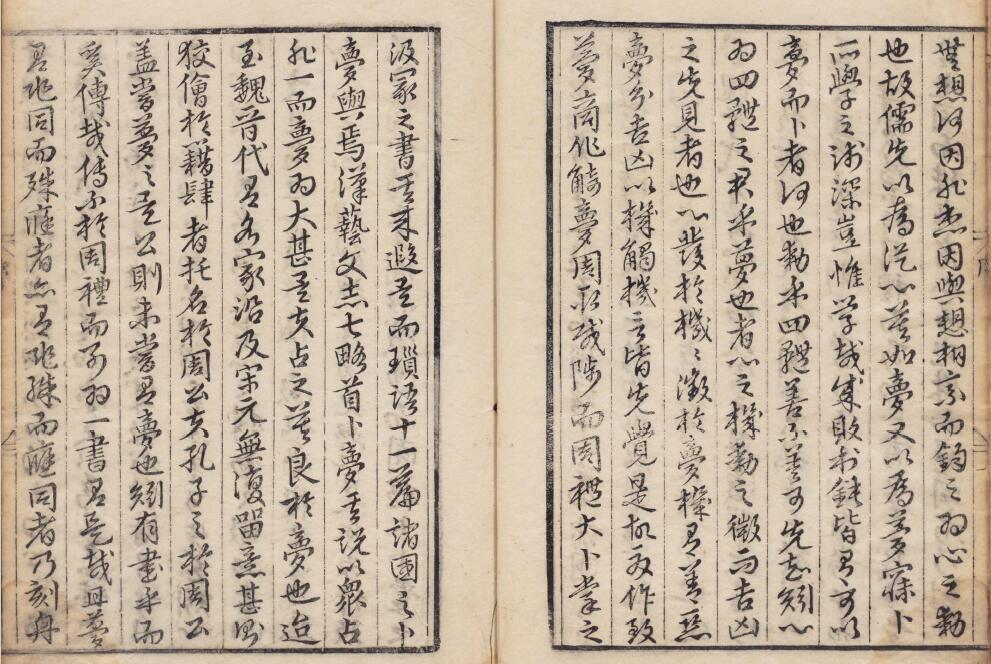 無想何因非想因與想相京而鈞之為心之動
也故儒先以為從心者如夢又以為夢寐卜
所學之淺深豈惟學哉成敗利鈍皆有可以
夢而卜者何也動乎四體善不善可先知矧心
為四體之君乎夢也者心之機動之微而吉凶
之先見者也心發於機機徵於夢機有善惡
夢分吉凶以機觸機之皆先覺是故夏作致
夢商作觭夢周取咸陟而周禮大卜掌之
汲冢之書其來遐矣而瑣語十一篇諸國之卜
夢與焉漢藝文志七略首卜夢其說以眾占
非一而夢為大甚矣夫占之莫良於夢也迨
至魏晉代有名家沿及宋元無復留意甚則
狡儈於籍肆者托名於周公夫孔子之於周公
蓋嘗夢之矣公則未嘗有夢也矧有書乎而
奚傳哉傳不於周禮而別為一書有是哉且夢
有兆同而殊應者亦有兆殊而應同者乃刻舟